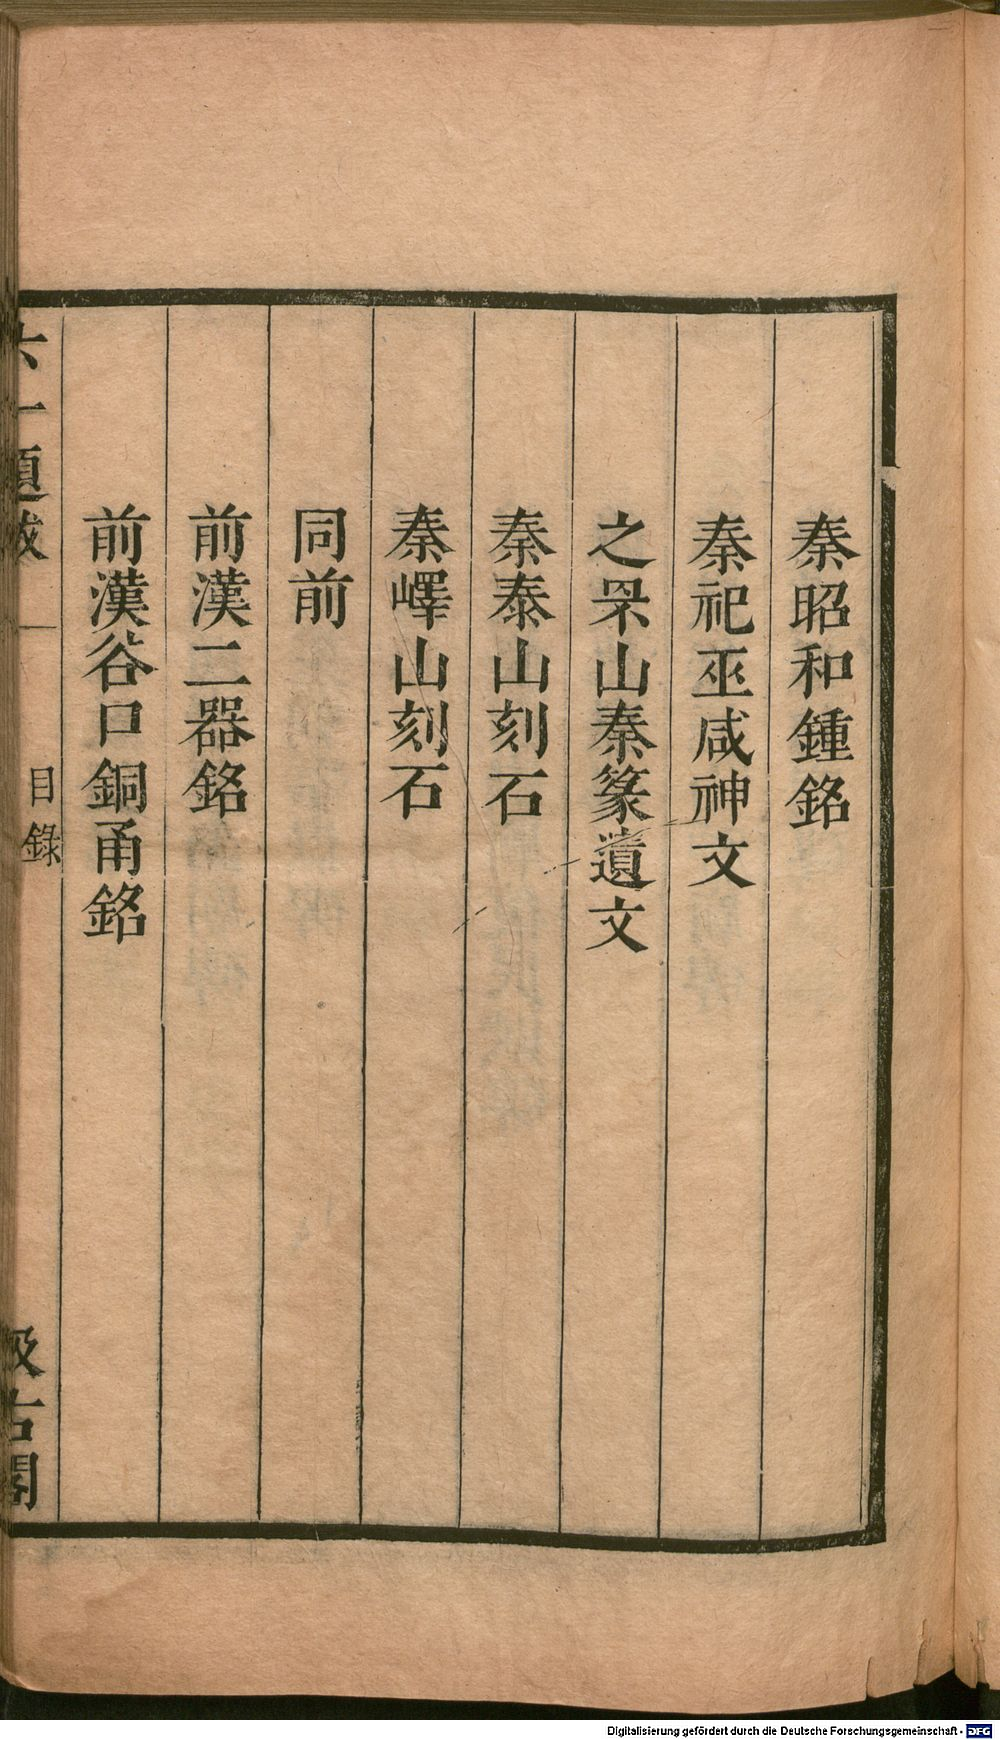 秦昭和鍾銘
秦祀巫咸神文
之罘山秦篆遺文
秦泰山刻石
秦嶧山刻石
同前
前漢二器銘
前漢谷口銅甬銘
六一題跋
目錄
汲古閣
Digitalisierung gefördert durch die Deutsche Forschungsgemeinschaft - DFG